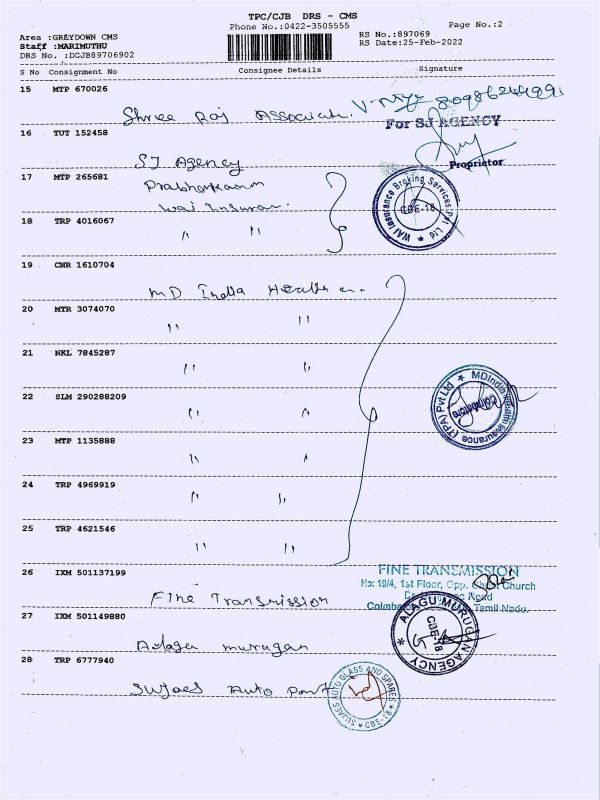 TPC/CJB DRS - CMS
Phone No.:0422-3505555
Page No.:2
Area :GREYDOWN CMS
Staff :MARIMUTHU
DRS No. :DCJB89706902
RS No.:897069
RS Date:25-Feb-2022
S No Consignment No Consignee Details Signature
15 MTP 670026
Shree Raj Associate.
16 TUT 152458
For SJ AGENCY
Proprietor
SJ Agency
17 MTP 265681
Prabhakaran
Wai Insuran.
WAI Insurance Broking Services Pvt Ltd
CBE-18
18 TRP 4016067
" "
19 CNR 1610704
MD India Health
20 MTR 3074070
" "
21 NKL 7845287
" "
22 SLM 290288209
" "
MDIndia Health Insurance (TPA) Pvt Ltd
Coimbatore
23 MTP 1135888
" "
24 TRP 4969919
" "
25 TRP 4621546
" "
26 IXM 501137199
FINE TRANSMISSION
No: 19/4, 1st Floor, Opp. Church
Road
Tamil Nadu.
Fine Transmission
27 IXM 501149880
ALAGU MURUGAN AGENCY
CBE-18
Alagu murugan
28 TRP 6777940
Sujaes Auto Part
SUJAES AUTO GLASS AND SPARES
CBE-18